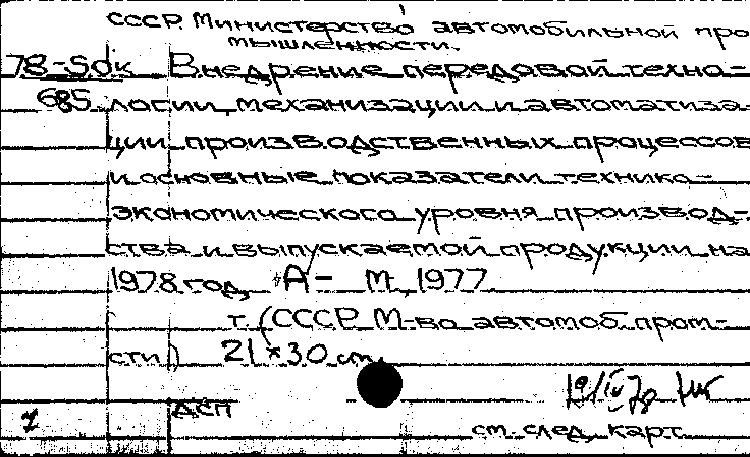 СССР. Министерство автомобильной про
мышленности.
78-50к Внедрение передовой техно-
685 логии, механизации и автоматиза
ции производственных процессов
и основные показатели технико-
экономического уровня производ-
ства и выпускаемой продукции на
1978 год. А- М, 1977
т. (СССР. М-во автомоб. пром-
сти) 21 × 30 см.
19/IV 78
ДСП
см. след. карт